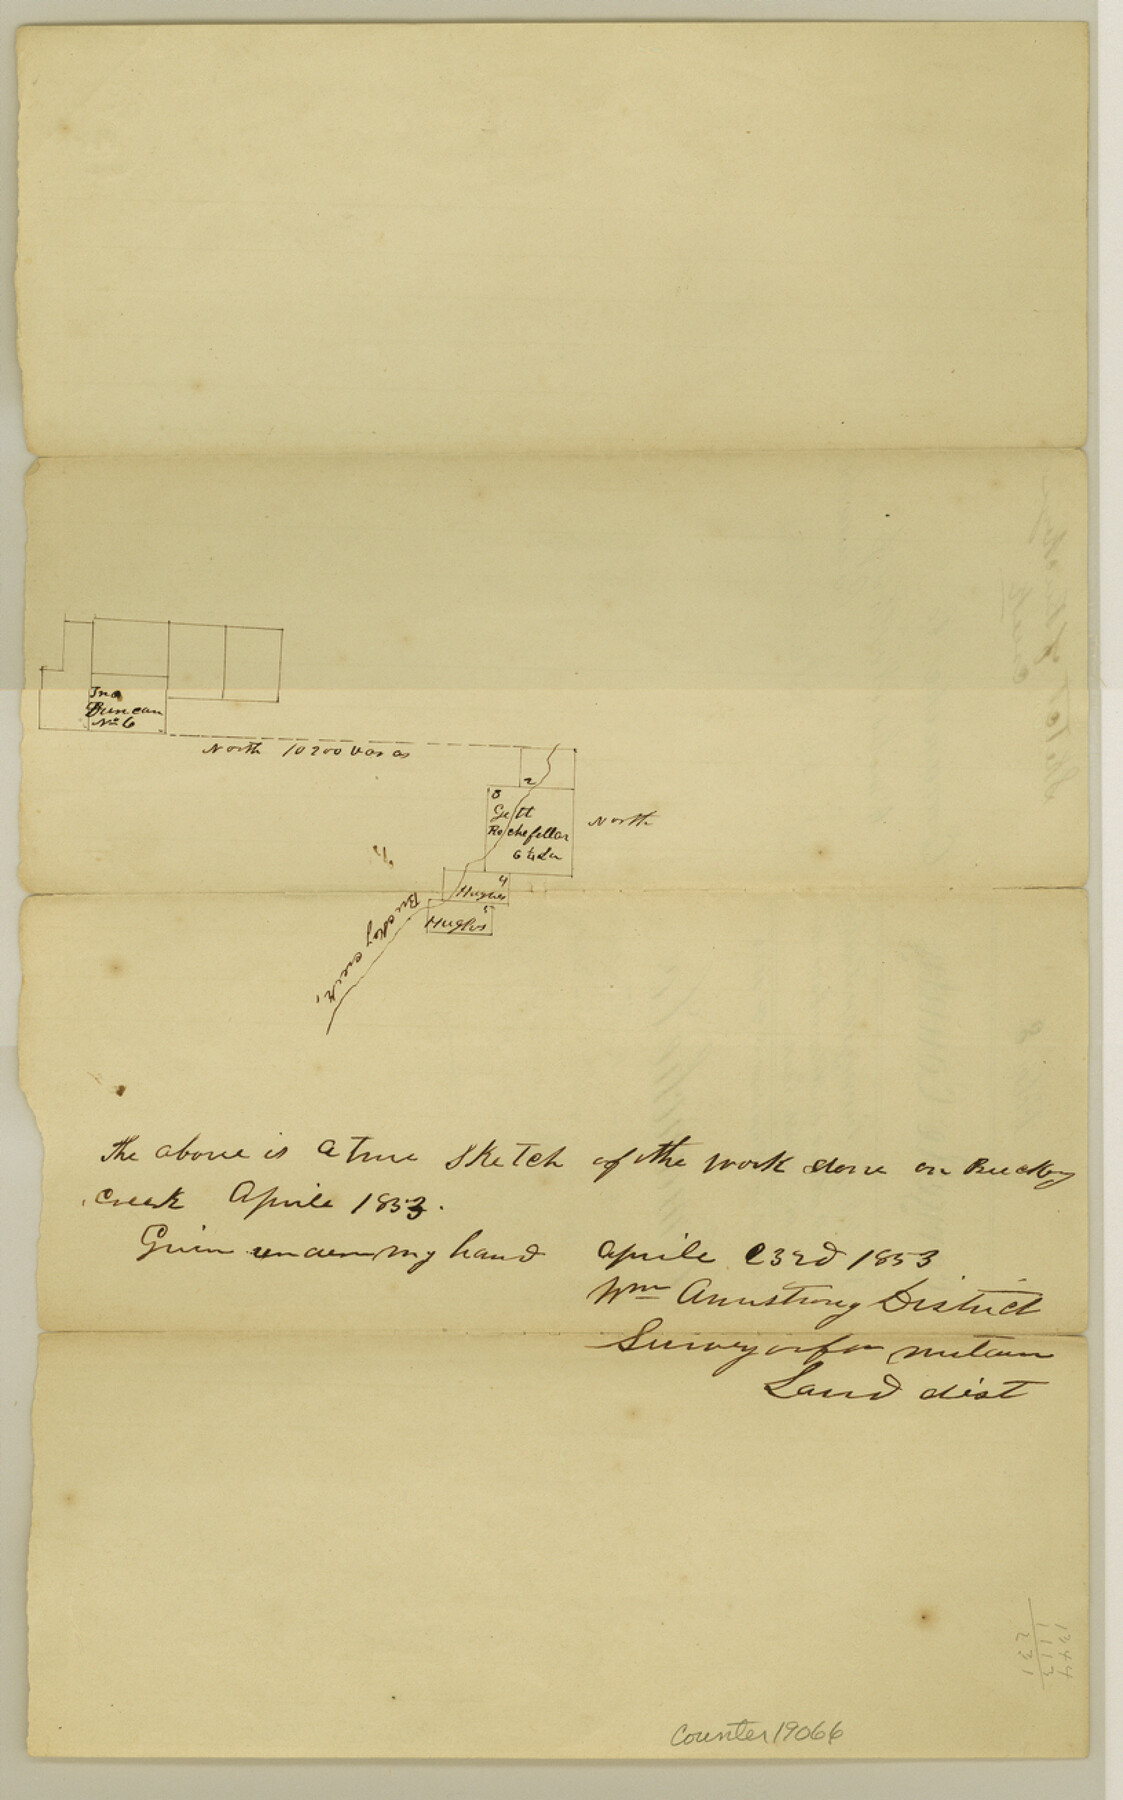 Jno
Duncan
No 6
North 10200 Varas
2
3
Gett
Rochefellar
6 ¼ La
North
4
Hughes
5
Hughes
Buckey creek,
The above is a true Sketch of the work done on Buckey
creek Aprile 1853.
Givin under my hand Aprile 23rd 1853
Wm Armstrong District
Surveyor for milam
Land dist
1344
1113
231
Counter 19066